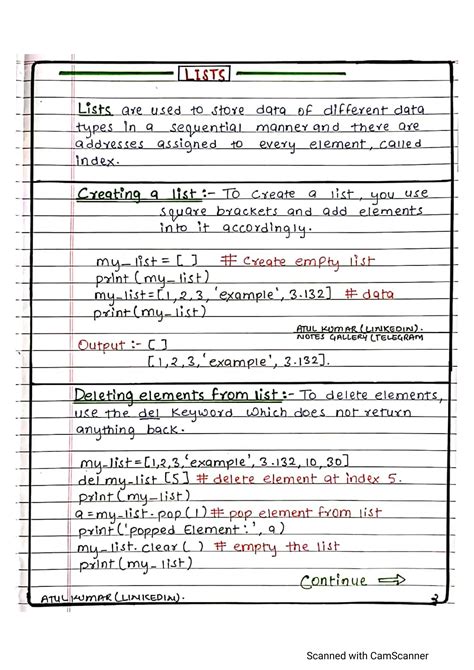 LISTS
Lists are used to store data of different data
types in a sequential manner and there are
addresses assigned to every element, called
index.
Creating a list :- To create a list, you use
square brackets and add elements
into it accordingly.
my_list = [ ] # create empty list
print (my_list)
my_list = [1, 2, 3, 'example', 3.132] # data
print (my_list)
ATUL KUMAR (LINKEDIN).
NOTES GALLERY (TELEGRAM
Output :- [ ]
[1, 2, 3, 'example', 3.132].
Deleting elements from list :- To delete elements,
use the del keyword which does not return
anything back.
my_list = [1,2,3,'example', 3.132, 10, 30]
del my_list [5] # delete element at index 5.
print (my_list)
a = my_list.pop (1) # pop element from list
print ('popped Element:', a)
my_list.clear ( ) # empty the list
print (my_list)
Continue ⇒
ATUL KUMAR (LINKEDIN). 3
Scanned with CamScanner